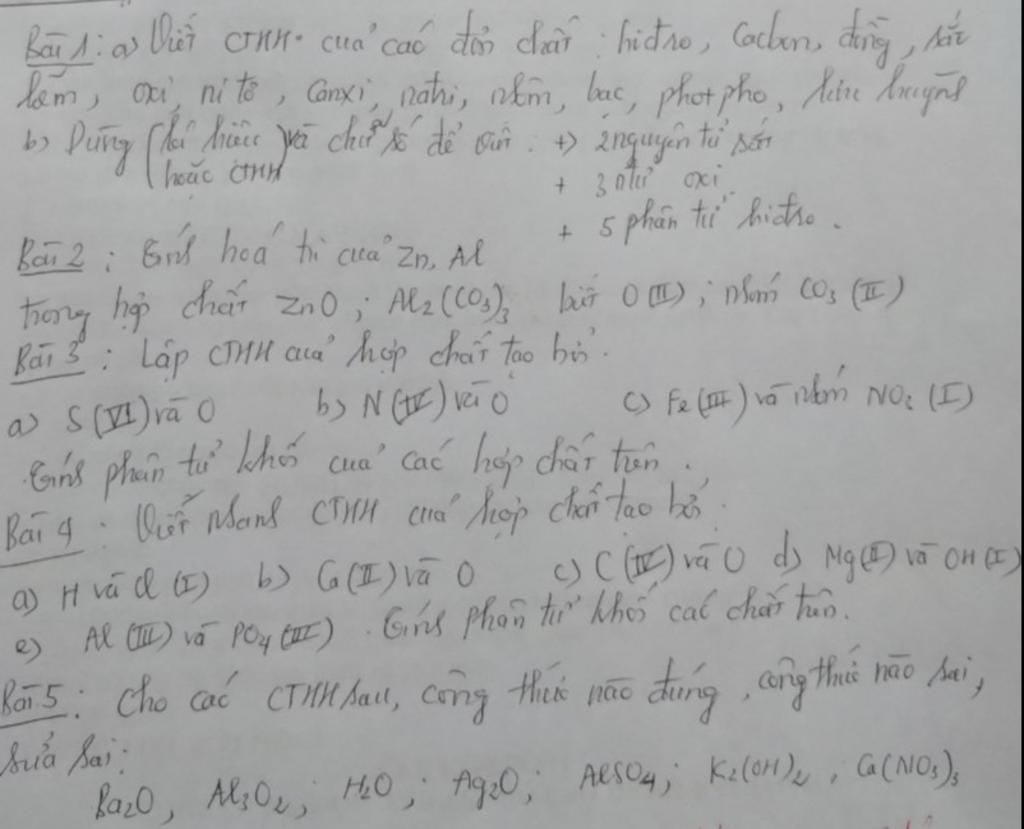 Bài 1: a) Viết CTHH của các đơn chất: hiđro, Cacbon, đồng, sắt
kẽm, oxi, ni tơ, Canxi, natri, nhôm, bạc, photpho, lưu huỳnh
b) Dùng (kí hiệu hoặc CTHH) và chữ số để viết: +) 2 nguyên tử sắt
+ 3 ntử oxi
+ 5 phân tử hiđro.
Bài 2: Tính hoá trị của Zn, Al
trong hợp chất ZnO; Al₂(CO₃)₃ biết O(II); nhóm CO₃ (II)
Bài 3: Lập CTHH của hợp chất tạo bởi.
a) S(VI) và O b) N(IV) và O c) Fe(III) và nhóm NO₃ (I)
Tính phân tử khối của các hợp chất trên.
Bài 4: Viết nhanh CTHH của hợp chất tạo bởi.
a) H và Cl (I) b) Ca(II) và O c) C(IV) và O d) Mg(II) và OH(I)
e) Al(III) và PO₄(III). Tính phân tử khối các chất trên.
Bài 5: Cho các CTHH sau, công thức nào đúng, công thức nào sai,
sửa sai:
Ba2O, Al₃O₂; H₂O; Ag₂O; AlSO₄; K₂(OH)₂, Ca(NO₃)₃